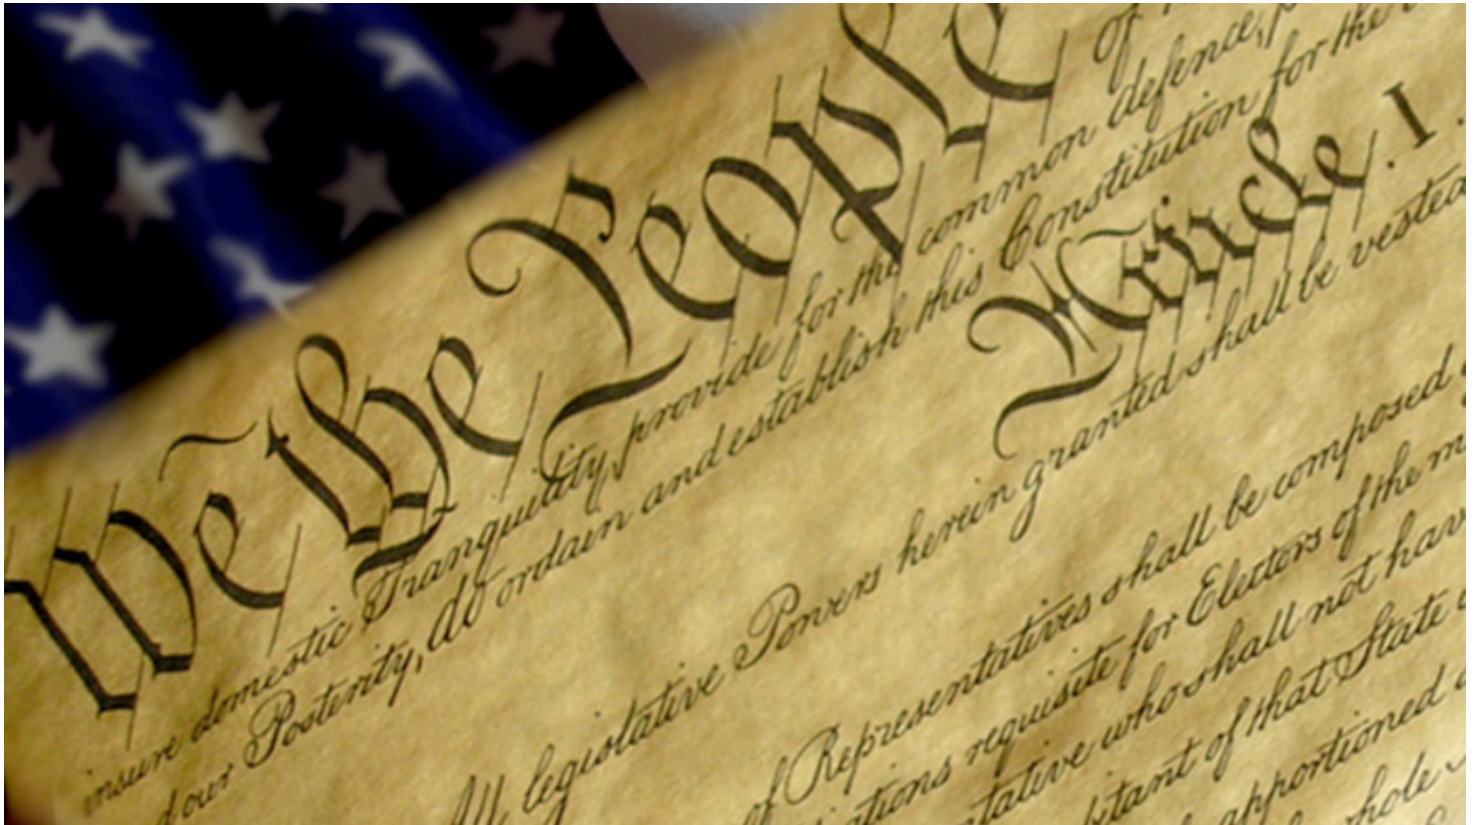 We the People
of
insure domestic Tranquility, provide for the common defence,
our Posterity, do ordain and establish this Constitution for the
Article. I.
All legislative Powers herein granted shall be vested
of Representatives shall be composed
requisite for Electors of the
who shall not have
of that State
apportioned
whole